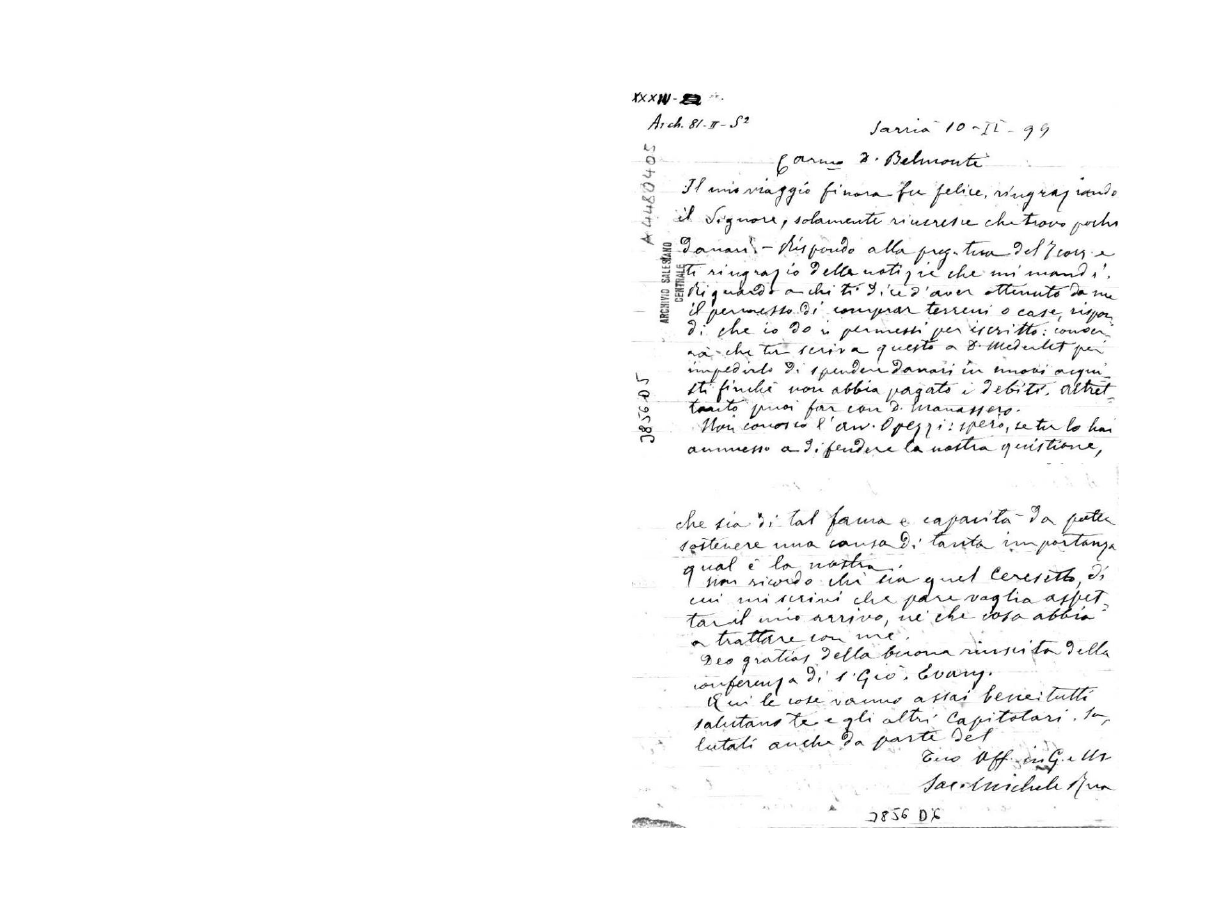 XXXIV-
Arch. 81-II-S2
Sarrià 10-II-99
A4480405
ARCHIVIO SALESIANO
CENTRALE
3856 D5
Carmo D. Belmonte
Il mio viaggio finora fu felice, ringraziando
il Signore, solamente rincresce che trovo pochi
danari. - Rispondo alla preg. tua del 7 corr. e
ti ringrazio delle notizie che mi mandi.
Riguardo a chi ti dice d'aver ottenuto da me
il permesso di comprar terreni o case, rispon
di che io do i permessi per iscritto: conver
rà che tu scriva questo a D. Mederlet per
impedirlo di spendere danari in nuovi acqui-
sti finchè non abbia pagato i debiti. Altret-
tanto puoi far con D. Manassero.
Non conosco l'avv. Opezzi: spero, se tu lo hai
ammesso a difendere la nostra quistione,
che sia di tal fama e capacità da poter
sostenere una causa di tanta importanza
qual è la nostra.
Non ricordo chi sia quel Ceresetto, di
cui mi scrivi che pare voglia aspet-
tar il mio arrivo, nè che cosa abbia
a trattare con me.
Deo gratias della buona riuscita della
conferenza di S. Gio. Evang.
Qui le cose vanno assai bene: tutti
salutano te e gli altri Capitolari. Sa-
lutali anche da parte del
Tuo Aff. in G. e M.
Sac. Michele Rua
3856 D6